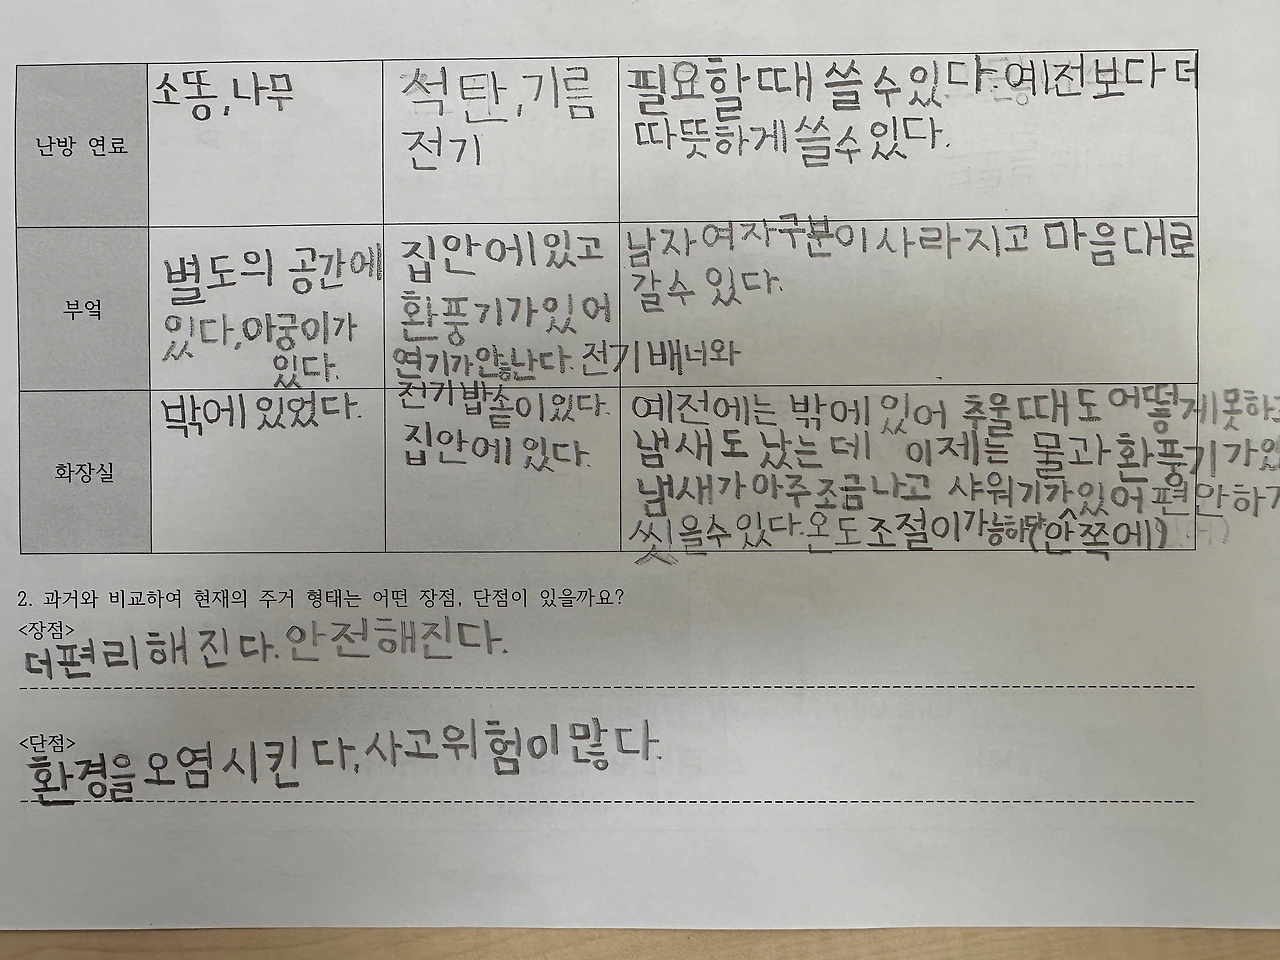 난방 연료
소똥,나무
석탄,기름
전기
필요할때 쓸수있다.예전보다 더
따뜻하게쓸수있다.
부엌
별도의 공간에
있다,아궁이가
있다.
집안에있고
환풍기가있어
연기가안난다.전기배너와
전기밥솥이있다.
남자여자구분이사라지고 마음대로
갈수 있다.
화장실
밖에있었다.
집안에있다.
예전에는 밖에있어 추울때도어떻게못하고
냄새도 났는데 이제는 물과환풍기가있
냄새가아주조금나고 샤워기가있어편안하게
씻을수있다.온도조절이가능하다(안쪽에)
2. 과거와 비교하여 현재의 주거 형태는 어떤 장점, 단점이 있을까요?
<장점>
더편리해진다.안전해진다.
<단점>
환경을오염시킨다,사고위험이많다.